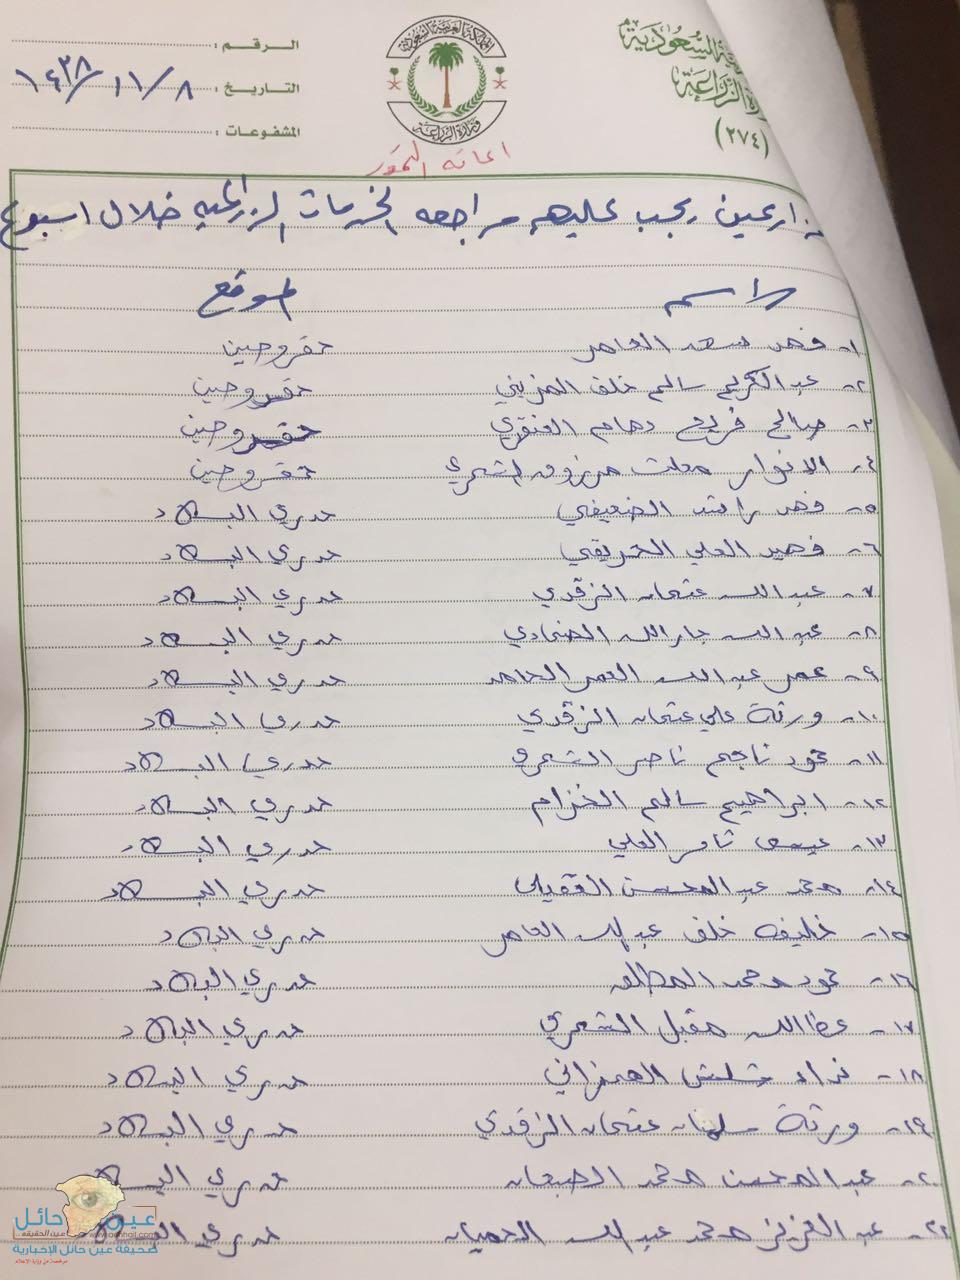 ية السعودية
رة الزراعة
(٢٧٤)
المملكة العربية السعودية
وزارة الزراعة
الرقم :
التاريخ : ١٤٣٨/١١/٨
المشفوعات :
اعانة التمور
زارعين يجب عليهم مراجعة الخدمات الزراعية خلال اسبوع
الاسم الموقع
١- فهد سعد العامر
٢- عبدالكريم سالم خلف المزيني
٣- صالح فريح دهام
٤- مرزوق الشمري
٥- فهد راشد الضعيفي حدري البلاد
٦- فهيد العلي حدري البلاد
٧- عبدالله عثمان الزقدي حدري البلاد
٨- عبدالله جارالله حدري البلاد
٩- عمر عبدالله العمر العامر حدري البلاد
١٠- ورثة علي عثمان الزقدي حدري البلاد
١١- حمود ناجم ناصر الشمري حدري البلاد
١٢- ابراهيم سالم الخزام حدري البلاد
١٣- عيسى ثامر العلي حدري البلاد
١٤- محمد عبدالمحسن القفيلي حدري البلاد
١٥- خليفه خلف عبدالله العامر حدري البلاد
١٦- حمود محمد المطلق حدري البلاد
١٧- عطاالله مقبل الشمري حدري البلاد
١٨- شلاش الهمزاني حدري البلاد
١٩- ورثة سلمان عثمان الزقدي حدري البلاد
٢٠- عبدالمحسن محمد الصبعان حدري البلاد
٢٢- عبدالعزيز محمد عبدالله الحميان حدري
عين حائل
عين الحقيقة
صحيفة عين حائل الإخبارية
مرخصة من وزارة الاعلام